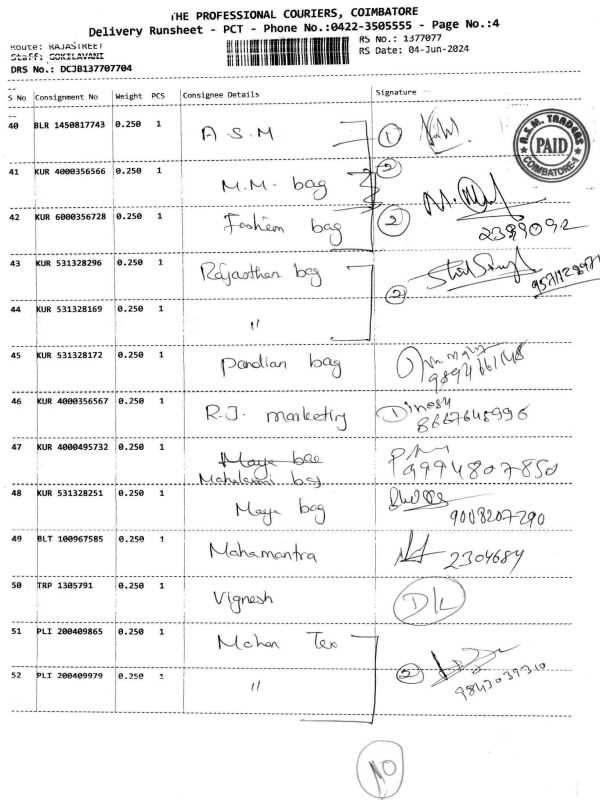 THE PROFESSIONAL COURIERS, COIMBATORE
Delivery Runsheet - PCT - Phone No.:0422-3505555 - Page No.:4
Route: RAJASTREET
RS No.: 1377077
Staff: GOKILAVANI
RS Date: 04-Jun-2024
DRS No.: DCJB137707704
S No Consignment No Weight PCS Consignee Details Signature
40 BLR 1450817743 0.250 1 A.S.M 1
A.S.M. TRADERS
PAID
COIMBATORE-1
41 KUR 4000356566 0.250 1 M.M. bag 2
42 KUR 6000356728 0.250 1 Fashion bag 2
2399092
43 KUR 531328296 0.250 1 Rajasthan bag 2
44 KUR 531328169 0.250 1 "
45 KUR 531328172 0.250 1 pandian bag
46 KUR 4000356567 0.250 1 R.J. marketing Dinesh
8667648996
47 KUR 4000495732 0.250 1 Maya bag
Mahalaxmi bag 9994807850
48 KUR 531328251 0.250 1 Maya bag
9008207290
49 BLT 100967585 0.250 1 Mahamantra 2304684
50 TRP 1305791 0.250 1 Vignesh DK
51 PLI 200409865 0.250 1 Mohan Tex
52 PLI 200409979 0.250 1 " 2
9843039310
10